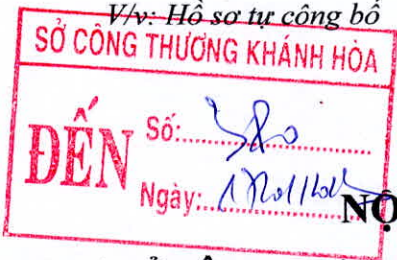 V/v: Hồ sơ tự công bố
SỞ CÔNG THƯƠNG KHÁNH HÒA
ĐẾN
Số:
Ngày:
NỘ